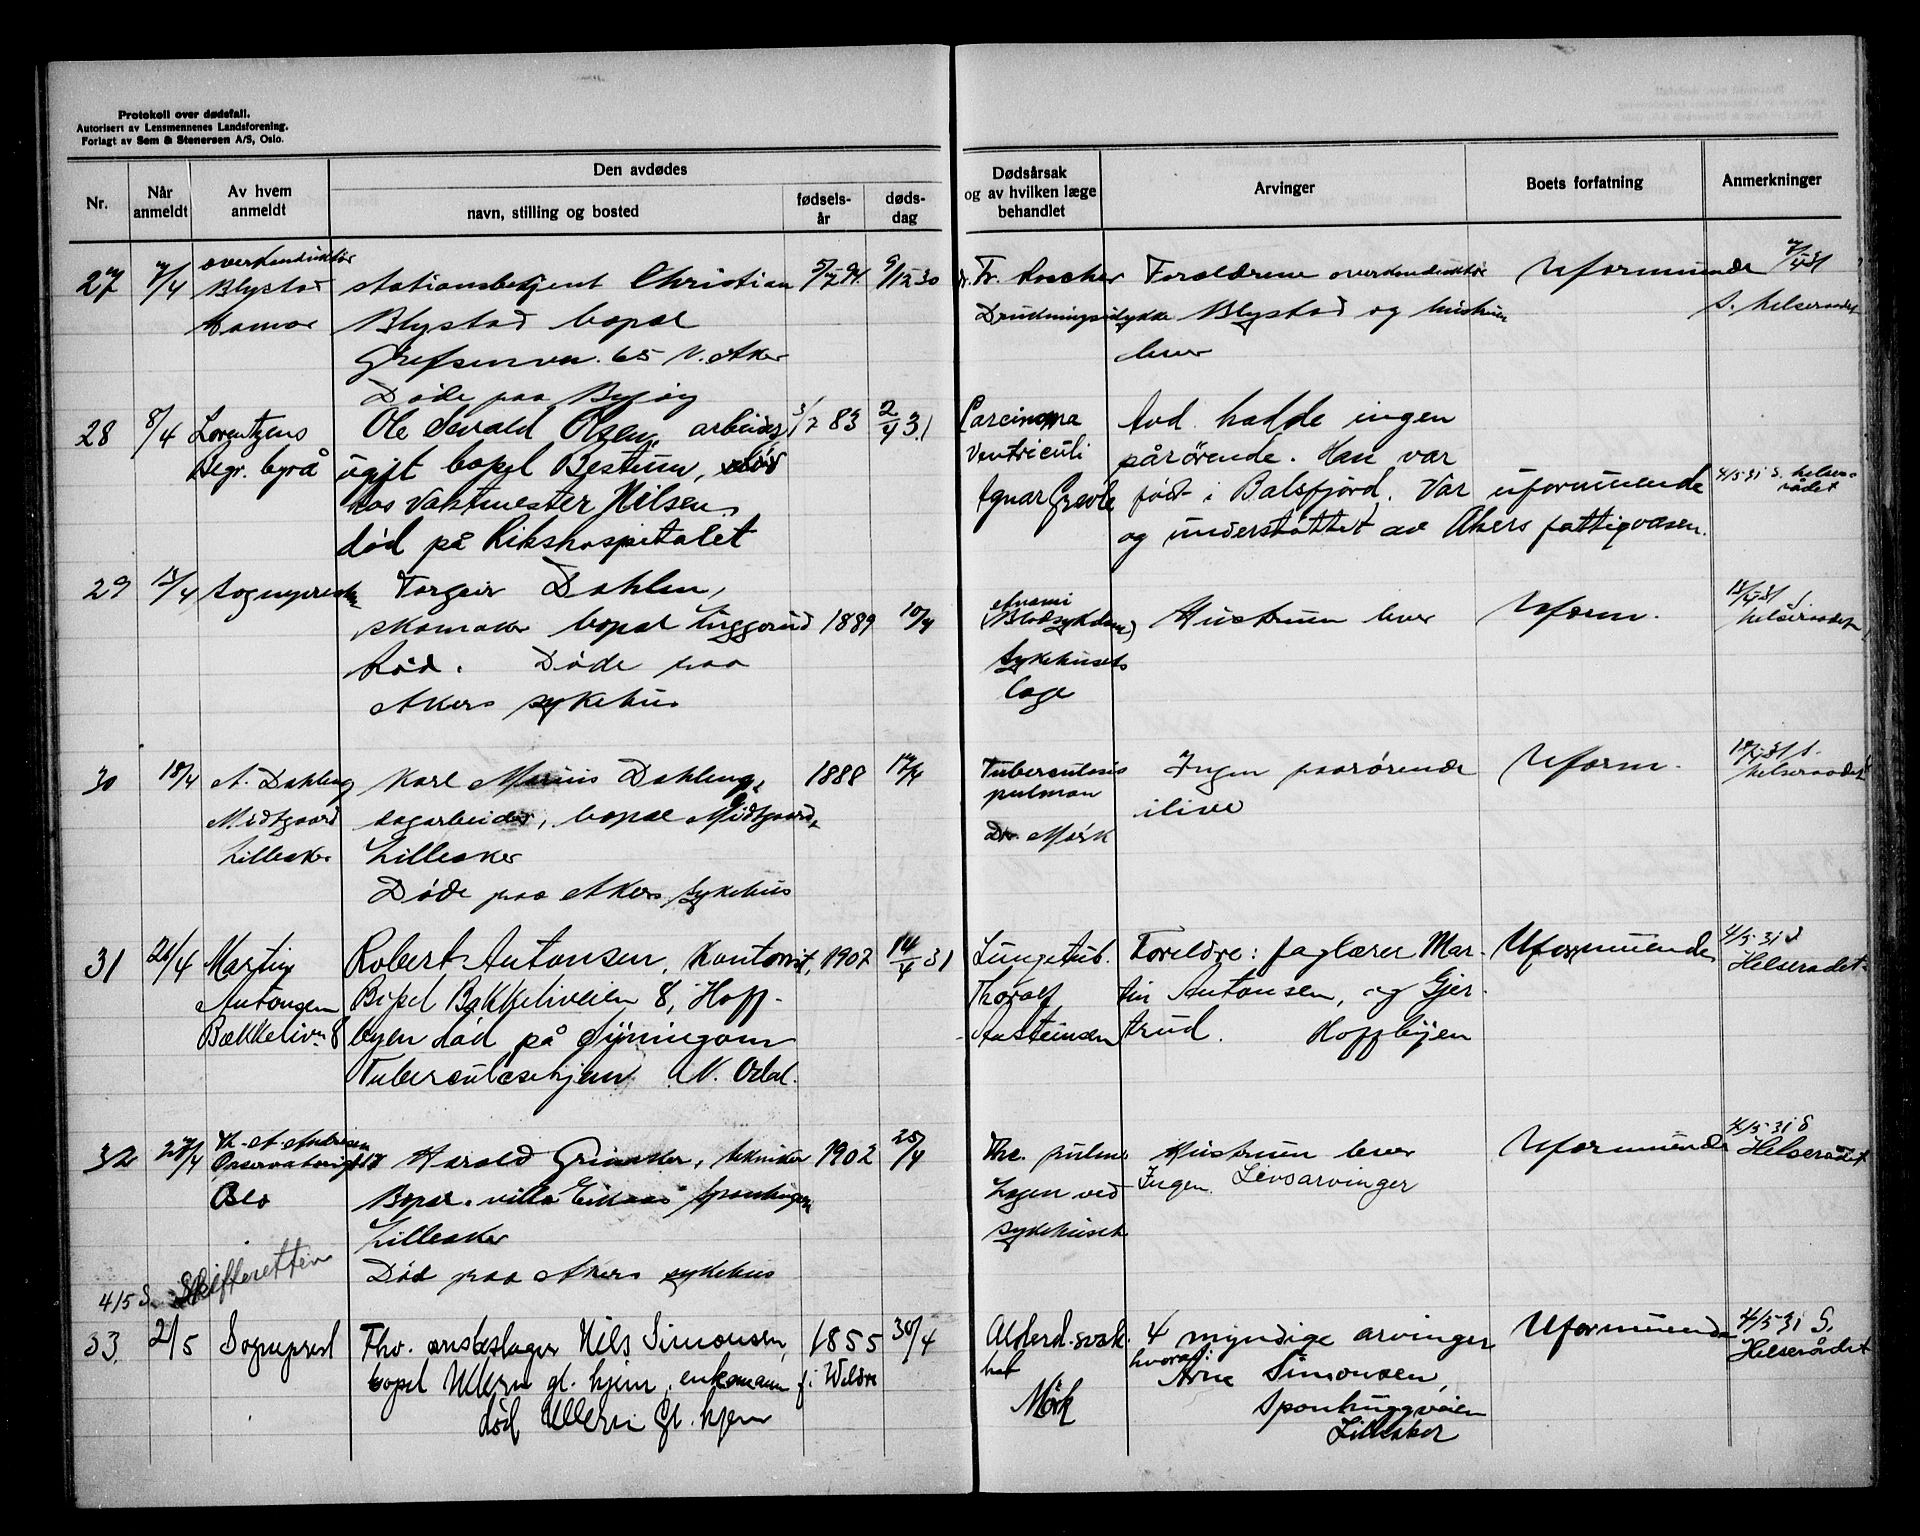 Protokoll over dødsfall.
Autorisert av Lensmennenes Landsforening.
Forlagt av Sem & Stenersen A/S, Oslo.
Nr.
Når anmeldt
Av hvem anmeldt
Den avdødes
navn, stilling og bosted
fødselsår
dødsdag
Dødsårsak og av hvilken læge behandlet
Arvinger
Boets forfatning
Anmerkninger
27 7/4 overkonduktør Blystad Hamar
stationsbetjent Christian
Blystad bopæl
Grefsenvn. 65 V. Aker
Døde paa Bygøy
Drukningsulykke
Forældrene overkonduktør
Blystad og hustru
lever
Uformuende
S. helseraadet
28 8/4 Lorentzens
Begr. byrå
Ole Sevald Olsen, arbeider, 83 2/4 31
ugift bopel Bestum,
hos Vaktmester Nilsen
død på Rikshospitalet
Carcinoma
Ventriculi
Avd. hadde ingen
pårørende. Han var
født i Balsfjord. Var uformuende
og understøttet av Akers fattigvæsen.
4/5 31 S. helserådet
29 Sogneprest
Torgeir Dahlen,
skomaker bopæl 1889 10/4
Død. Døde paa
Akers sykehus
Anæmi
(Blodsykdom)
Sykehusets
læge
Hustruen lever
Uform.
helseraadet
30 18/4 A. Dahleng
Midtgaard
Lilleaker
Karl Marius Dahleng, 1888
sagarbeider, bopæl Midtgaard,
Lilleaker
Døde paa Akers sykehus
Tuberculosis
pulmon
Dr Mørk
Ingen paarørende
ilive
Uform.
helseraadet
31 21/4 Martin
Antonsen
Bækkeliv. 8
Robert Antonsen, kontorist, 1907 14/4 31
Bopel Bekkeliveien 8, Hoff-
byen død på
Tuberculosehjem N. Odal.
Lungetub.
Thoralf
Austeinsen
Foreldre: faglærer Mar-
tin Antonsen, og Gjer-
trud. Hoffbyen
Uformuende
4/5 31 S
Helserådet
32 27/4 Th. A. Andresen
Observatoriegt
Oslo
Harald Grinaker, tekniker 1902 25/4
Bopæl villa
Lilleaker
Død paa Akers sykehus
Tbc. pulm.
Lægen ved
sykehuset
Hustruen lever
Ingen Livsarvinger
Uformuende
4/5 31 S
Helserådet
4/5 S. Skifteretten
33. 2/5 Sogneprest
Fhv. Nils Simonsen, 1855 30/4
bopel Ullern gl. hjem, enkemann
død Ullern Gl. hjem
Alderd. svak-
het
Mørk
4 myndige arvinger
hvoraf:
Arne Simonsen,
Sponhuggveien
Lilleaker
Uformuende
4/5 31 S.
Helserådet